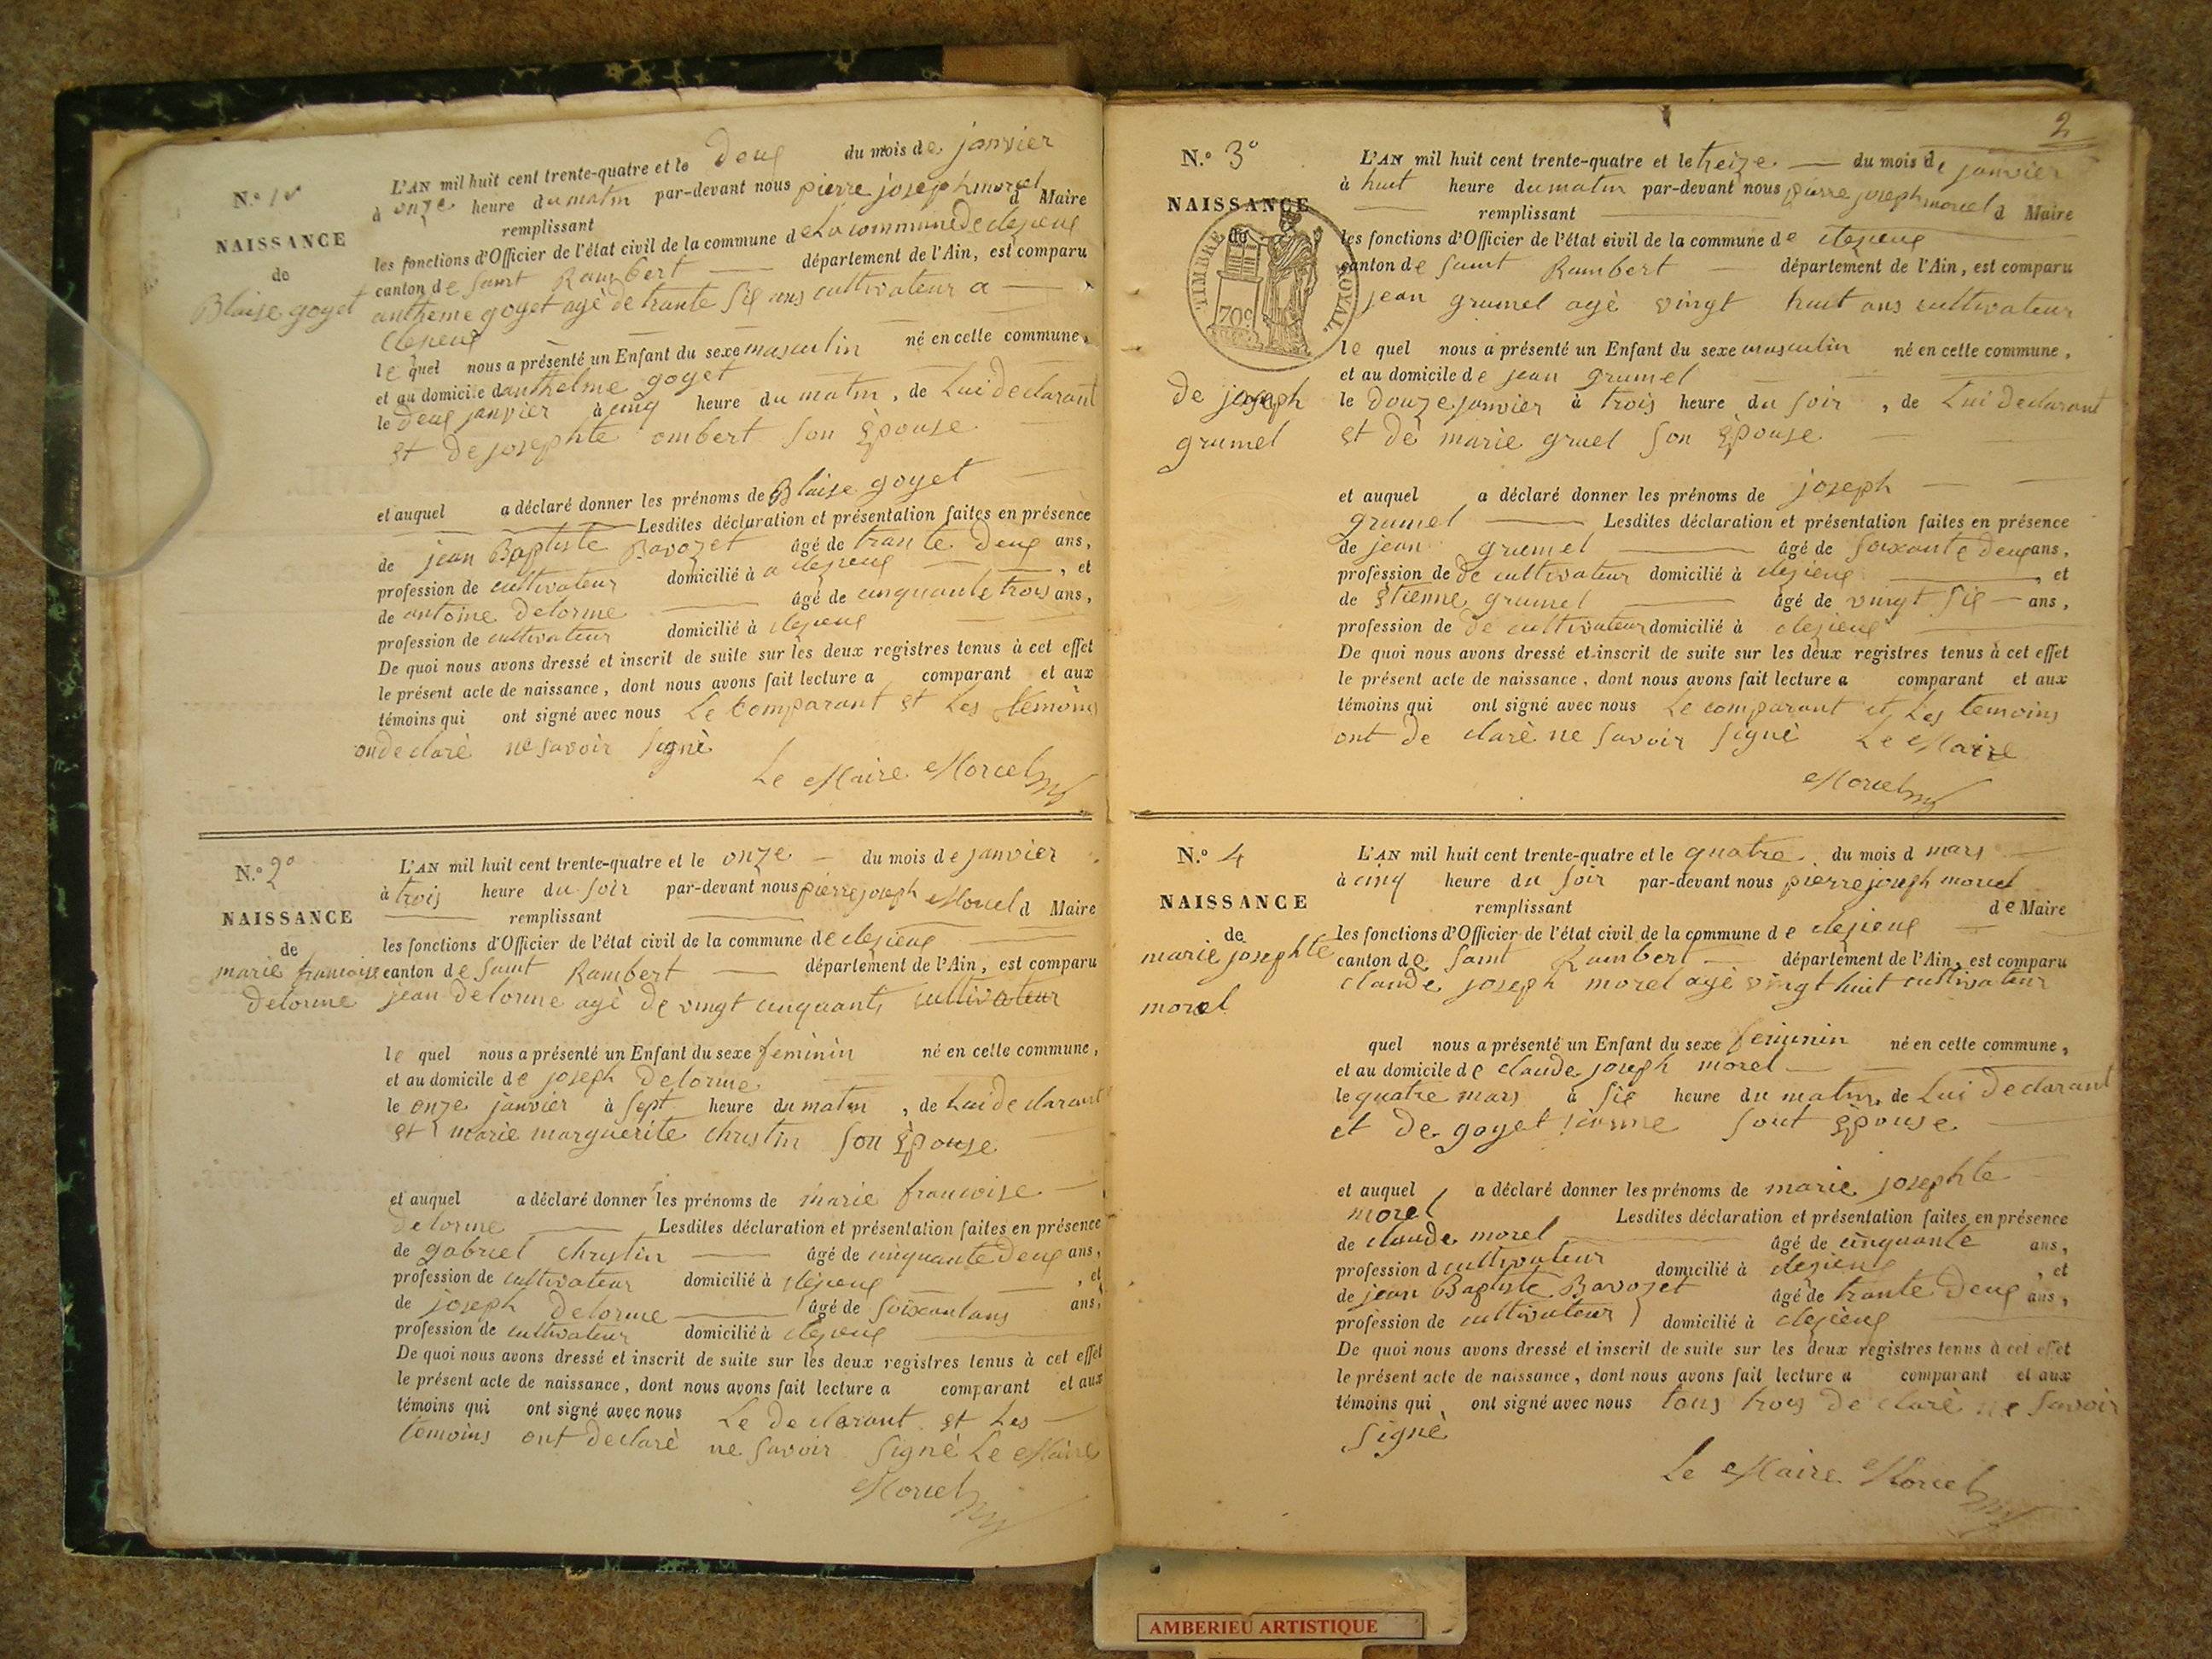 N.º 1º
NAISSANCE
de
Blaise goyet
L'AN mil huit cent trente-quatre et le deux du mois de janvier
à onze heure du matin par-devant nous pierre joseph morcel d Maire
remplissant
les fonctions d'Officier de l'état civil de la commune de La commune de clezieux
canton de saint Rambert département de l'Ain, est comparu
antheme goyet agè de trante six ans cultivateur a
clezieux
le quel nous a présenté un Enfant du sexe masculin né en cette commune,
et au domicile d anthelme goyet
le deux janvier à cinq heure du matin, de Lui declarant
et de josephte ombert son Épouse
et auquel a déclaré donner les prénoms de Blaise goyet
Lesdites déclaration et présentation faites en présence
de jean Baptiste Bavozet âgé de trante deux ans,
profession de cultivateur domicilié à a clezieux, et
de antoine delorme âgé de cinquante trois ans,
profession de cultivateur domicilié à clezieux
De quoi nous avons dressé et inscrit de suite sur les deux registres tenus à cet effet
le présent acte de naissance, dont nous avons fait lecture a comparant et aux
témoins qui ont signé avec nous Le comparant et Les temoins
on declarè ne savoir signè
Le Maire Morcel
N.º 2º
NAISSANCE
de
marie francoise
delorme
L'AN mil huit cent trente-quatre et le onze du mois de janvier
à trois heure du soir par-devant nous pierre joseph Morcel d Maire
remplissant
les fonctions d'Officier de l'état civil de la commune de clezieux
canton de saint Rambert département de l'Ain, est comparu
jean delorme agè de vingt cinq ans cultivateur
le quel nous a présenté un Enfant du sexe feminin né en cette commune,
et au domicile de joseph delorme
le onze janvier à sept heure du matin, de Lui declarant
et marie marguerite christin son Épouse
et auquel a déclaré donner les prénoms de marie francoise
delorme Lesdites déclaration et présentation faites en présence
de gabriel christin âgé de cinquante deux ans,
profession de cultivateur domicilié à clezieux, et
de joseph delorme âgé de soixantans ans,
profession de cultivateur domicilié à clezieux
De quoi nous avons dressé et inscrit de suite sur les deux registres tenus à cet effet
le présent acte de naissance, dont nous avons fait lecture a comparant et aux
témoins qui ont signé avec nous Le declarant et Les
temoins ont declarè ne savoir signè Le Maire
Morcel
2
N.º 3º
NAISSANCE
de
TIMBRE ROYAL.
70c
de joseph
grumel
L'AN mil huit cent trente-quatre et le treize du mois de janvier
à huit heure du matin par-devant nous pierre joseph morcel d Maire
remplissant
les fonctions d'Officier de l'état civil de la commune de clezieux
canton de saint Rambert département de l'Ain, est comparu
jean grumel agè vingt huit ans cultivateur
le quel nous a présenté un Enfant du sexe masculin né en cette commune,
et au domicile de jean grumel
le douze janvier à trois heure du soir, de Lui declarant
et de marie gruel son Épouse
et auquel a déclaré donner les prénoms de joseph
grumel Lesdites déclaration et présentation faites en présence
de jean grumel âgé de soixante deux ans,
profession de de cultivateur domicilié à clezieux, et
de Étienne grumel âgé de vingt six ans,
profession de de cultivateur domicilié à clezieux
De quoi nous avons dressé et inscrit de suite sur les deux registres tenus à cet effet
le présent acte de naissance, dont nous avons fait lecture a comparant et aux
témoins qui ont signé avec nous Le comparant et Les temoins
ont de clarè ne savoir signè Le Maire
Morcel
N.º 4
NAISSANCE
de
marie josephte
morel
L'AN mil huit cent trente-quatre et le quatre du mois d mars
à cinq heure du soir par-devant nous pierre joseph morcel
remplissant de Maire
les fonctions d'Officier de l'état civil de la commune de clezieux
canton de saint Rambert département de l'Ain, est comparu
claude joseph morel agè vingt huit cultivateur
quel nous a présenté un Enfant du sexe feminin né en cette commune,
et au domicile de claude joseph morel
le quatre mars à six heure du matin, de Lui declarant
et de goyet sont Épouse
et auquel a déclaré donner les prénoms de marie josephte
morel Lesdites déclaration et présentation faites en présence
de claude morel âgé de cinquante ans,
profession d cultivateur domicilié à clezieux, et
de jean Baptiste Bavozet âgé de trante deux ans,
profession de cultivateur domicilié à clezieux
De quoi nous avons dressé et inscrit de suite sur les deux registres tenus à cet effet
le présent acte de naissance, dont nous avons fait lecture a comparant et aux
témoins qui ont signé avec nous tous trois de clarè ne savoir
signè
Le Maire Morcel
AMBERIEU ARTISTIQUE